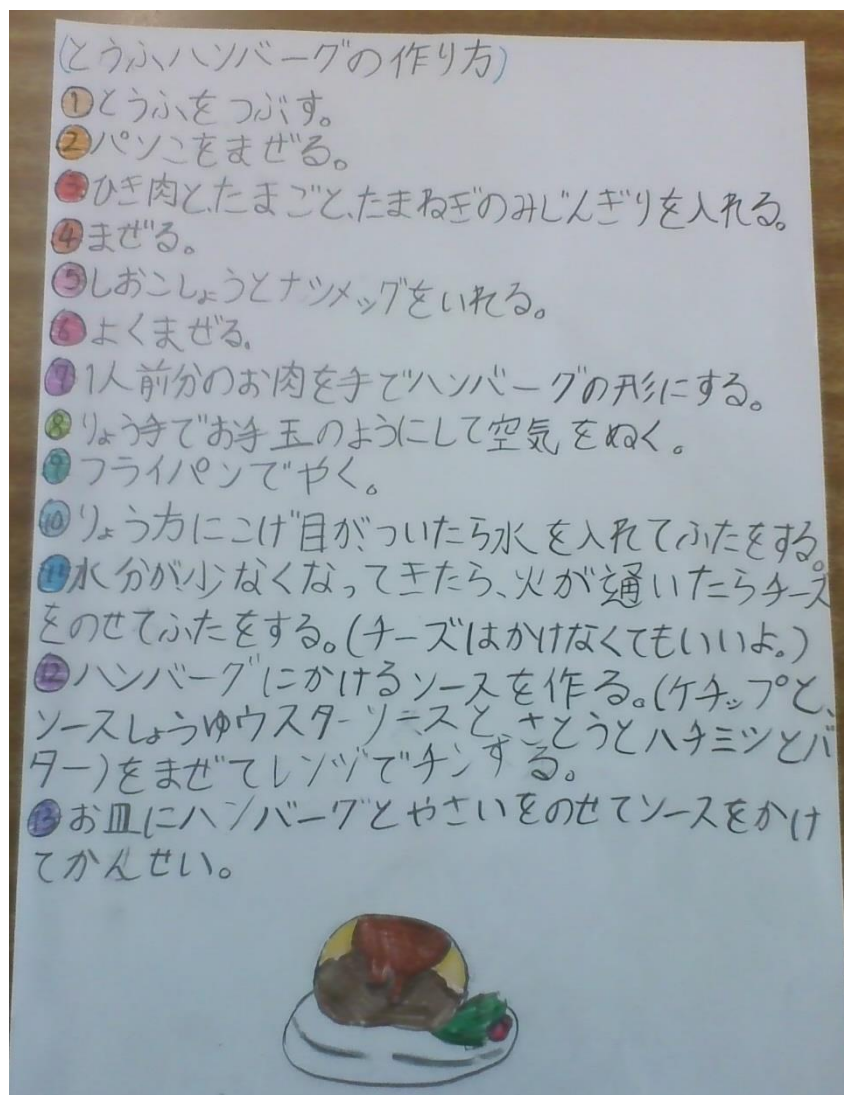 (とうふハンバーグの作り方)
①とうふをつぶす。
②パンこをまぜる。
③ひき肉と、たまごと、たまねぎのみじんぎりを入れる。
④まぜる。
⑤しおこしょうとナツメッグをいれる。
⑥よくまぜる。
⑦1人前分のお肉を手でハンバーグの形にする。
⑧りょう手でお手玉のようにして空気をぬく。
⑨フライパンでやく。
⑩りょう方にこげ目が、ついたら水を入れてふたをする。
⑪水分が少なくなってきたら、火が通いたらチーズ
をのせてふたをする。(チーズはかけなくてもいいよ。)
⑫ハンバーグにかけるソースを作る。(ケチップと、
ソースしょうゆウスターソースと、さとうとハチミツとバ
ター)をまぜてレンヅでチンする。
⑬お皿にハンバーグとやさいをのせてソースをかけ
てかんせい。